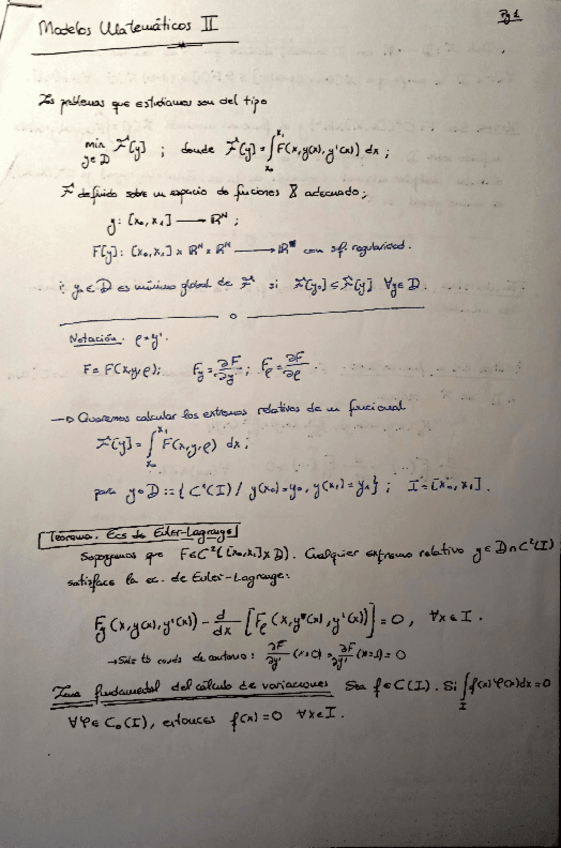 Modelos Matemáticos II
Pg 1
Los problemas que estudiamos son del tipo
min_{y∈D} F[y] ; donde F[y] = ∫_{x₀}^{x₁} F(x, y(x), y'(x)) dx ;
F definido sobre un espacio de funciones X adecuado ;
y: [x₀, x₁] ⟶ ℝᴺ ;
F[y]: [x₀, x₁] × ℝᴺ × ℝᴺ ⟶ ℝ con sf. regularidad.
y₀ ∈ D es mínimo global de F si F[y₀] ≤ F[y] ∀y ∈ D.
Notación. p = y'.
F = F(x, y, p); F_y = ∂F/∂y ; F_p = ∂F/∂p .
→ Queremos calcular los extremos relativos de un funcional
F[y] = ∫_{x₀}^{x₁} F(x, y, p) dx ;
para y ∈ D := { C¹(I) / y(x₀) = y₀, y(x₁) = y₁ } ; I = [x₀, x₁].
Teorema. Ecs de Euler-Lagrange
Supongamos que F ∈ C²([x₀, x₁] × D). Cualquier extremo relativo y ∈ D ∩ C²(I)
satisface la ec. de Euler-Lagrange:
F_y (x, y(x), y'(x)) - d/dx [F_p (x, y(x), y'(x))] = 0, ∀x ∈ I.
→ Sale conds de contorno: ∂F/∂y' (x=0) = ∂F/∂y' (x=1) = 0
Lema fundamental del cálculo de variaciones Sea f ∈ C(I). Si ∫_I f(x) φ(x) dx = 0
∀φ ∈ C₀(I), entonces f(x) = 0 ∀x ∈ I.